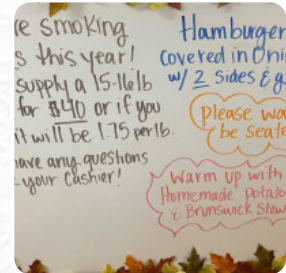 re smoking
s this year!
supply a 15-16lb
for $40 or if you
it will be 1.75 per lb.
have any questions
your Cashier!
Hamburger
covered in Oni
w/ 2 sides & g
Please wa
be seate
Warm up with
Homemade Potato
& Brunswick Stew